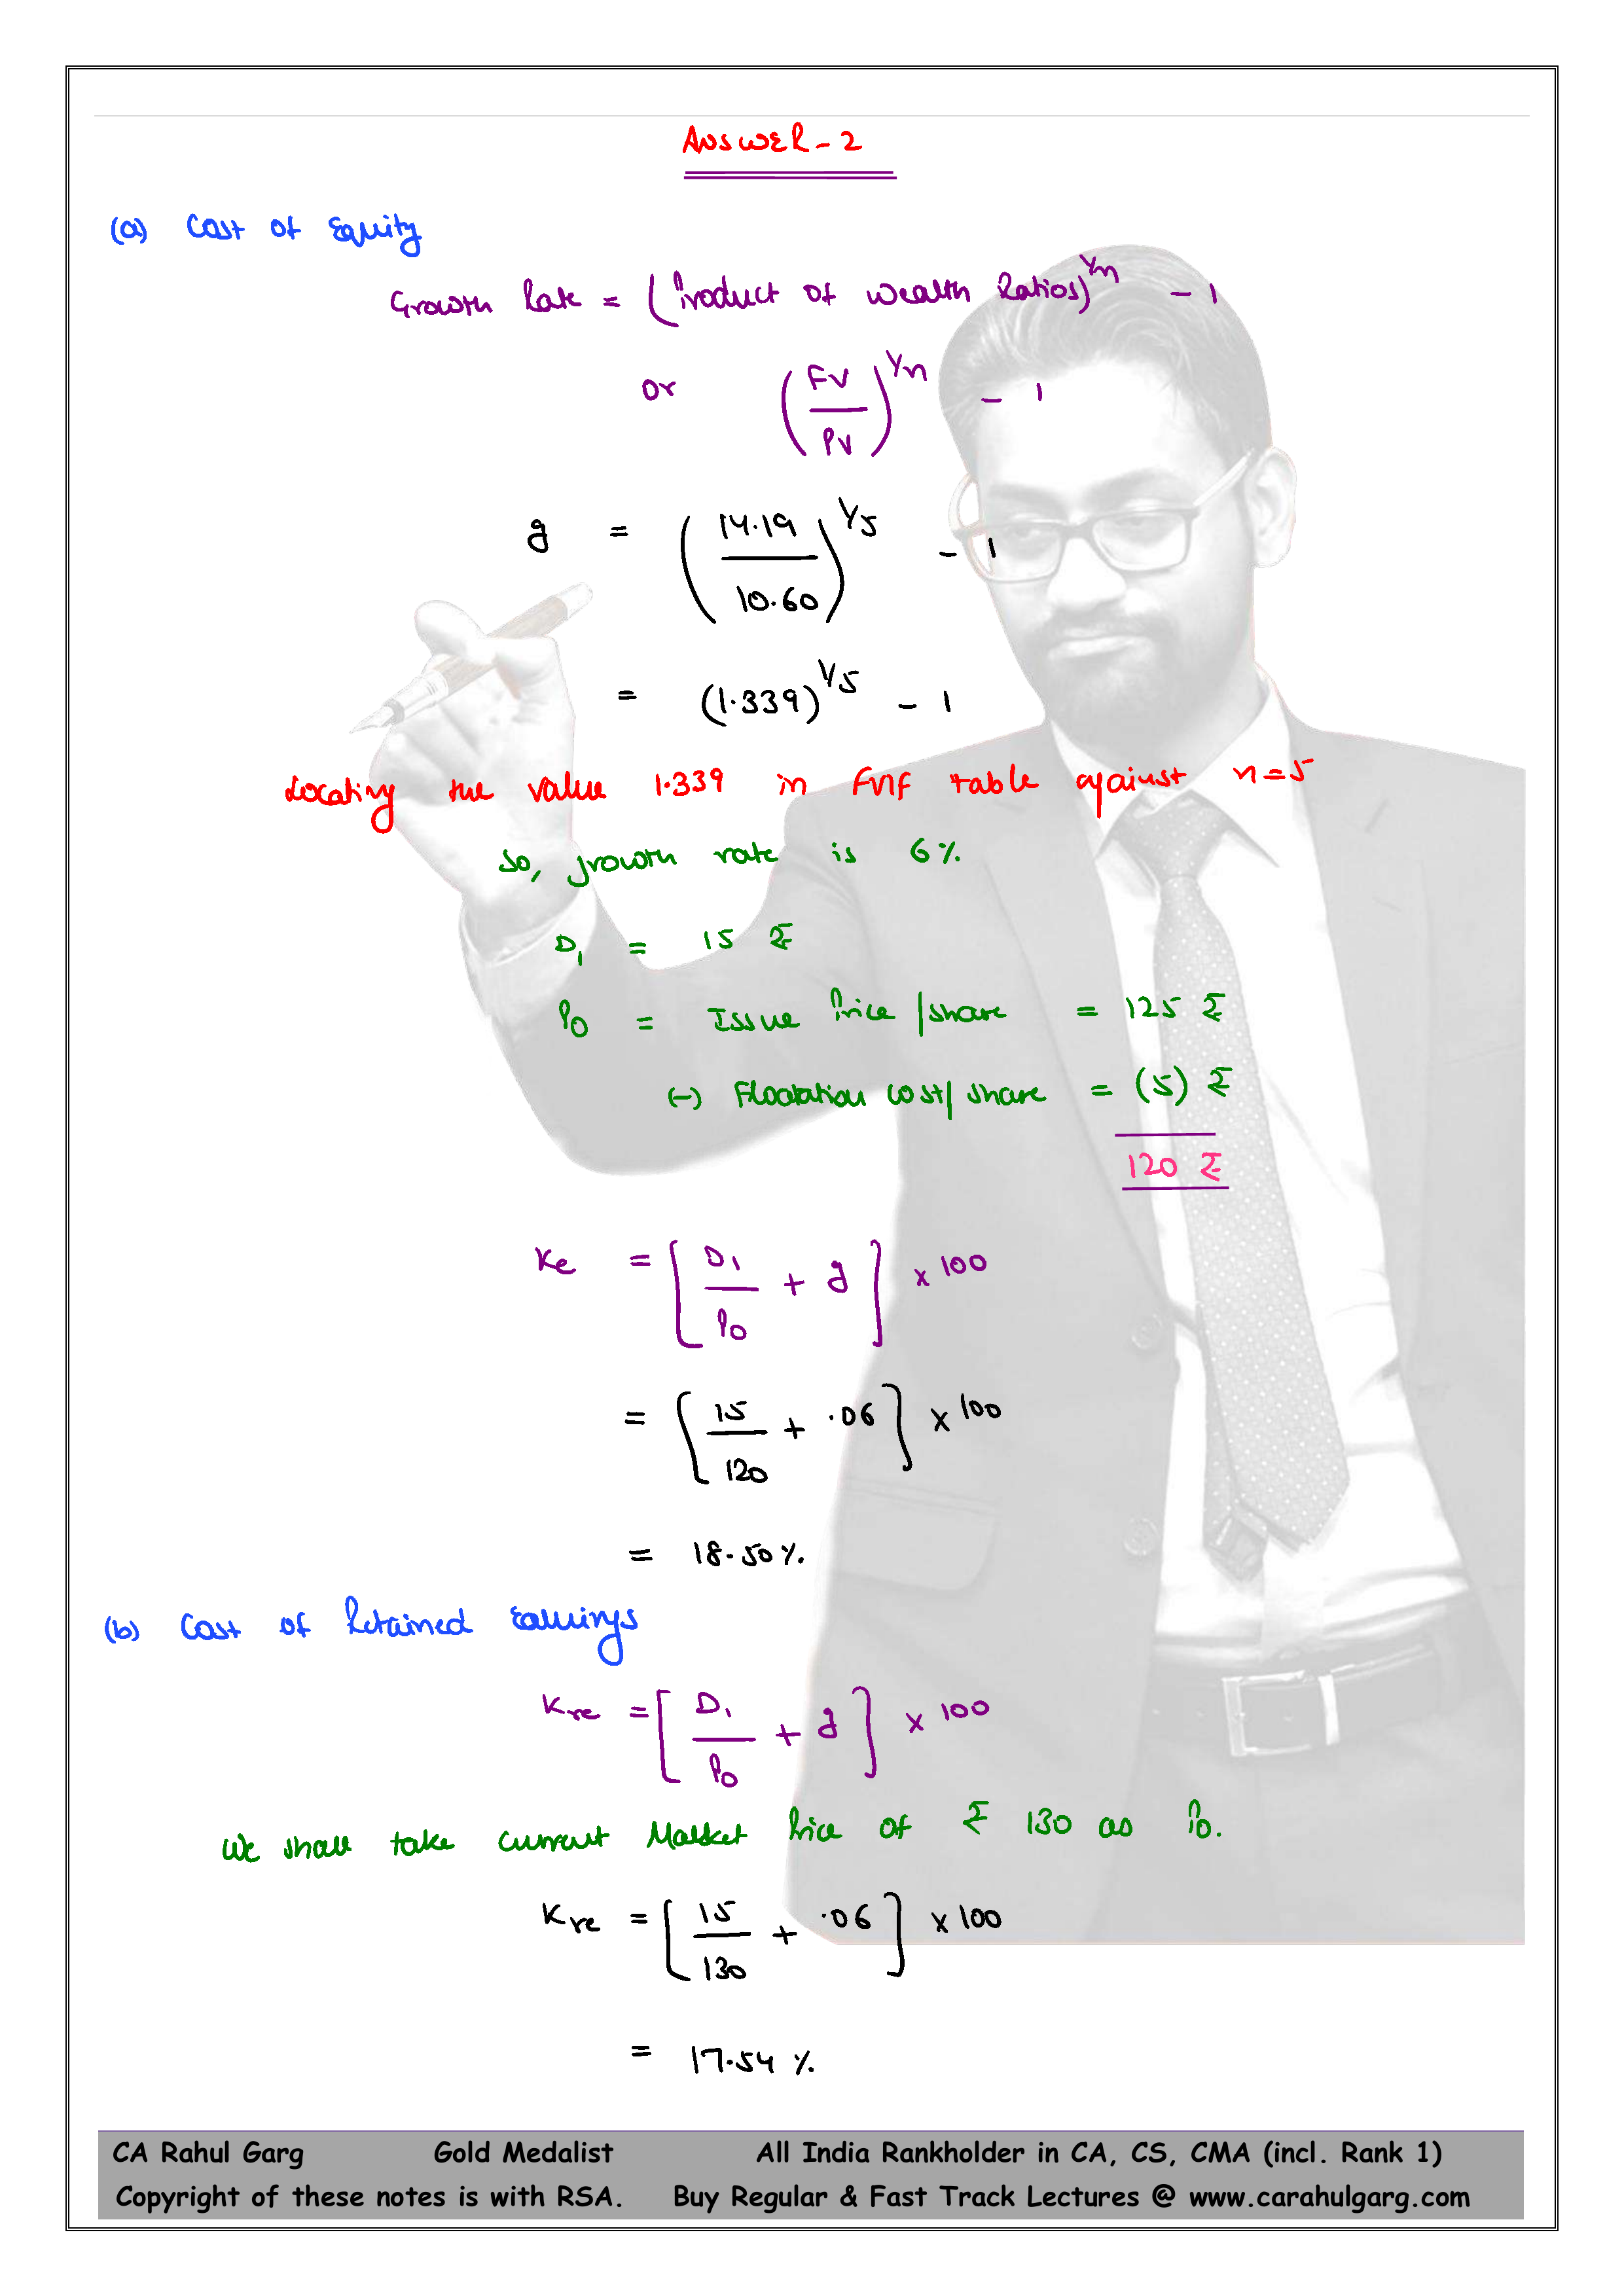 ANSWER-2
(a) Cost of Equity
Growth Rate = (Product of Wealth Ratios)^1/n - 1
or (FV/PV)^1/n - 1
g = (14.19/10.60)^1/5 - 1
= (1.339)^1/5 - 1
Locating the value 1.339 in FVIF table against n=5
So, growth rate is 6%.
D₁ = 15 ₹
P₀ = Issue Price/share = 125 ₹
(-) Floatation cost/share = (5) ₹
120 ₹
Ke = [D₁/P₀ + g] x 100
= [15/120 + .06] x 100
= 18.50%
(b) Cost of Retained Earnings
Kre = [D₁/P₀ + g] x 100
We shall take current Market Price of ₹ 130 as P₀.
Kre = [15/130 + .06] x 100
= 17.54 %
CA Rahul Garg Gold Medalist All India Rankholder in CA, CS, CMA (incl. Rank 1)
Copyright of these notes is with RSA. Buy Regular & Fast Track Lectures @ www.carahulgarg.com